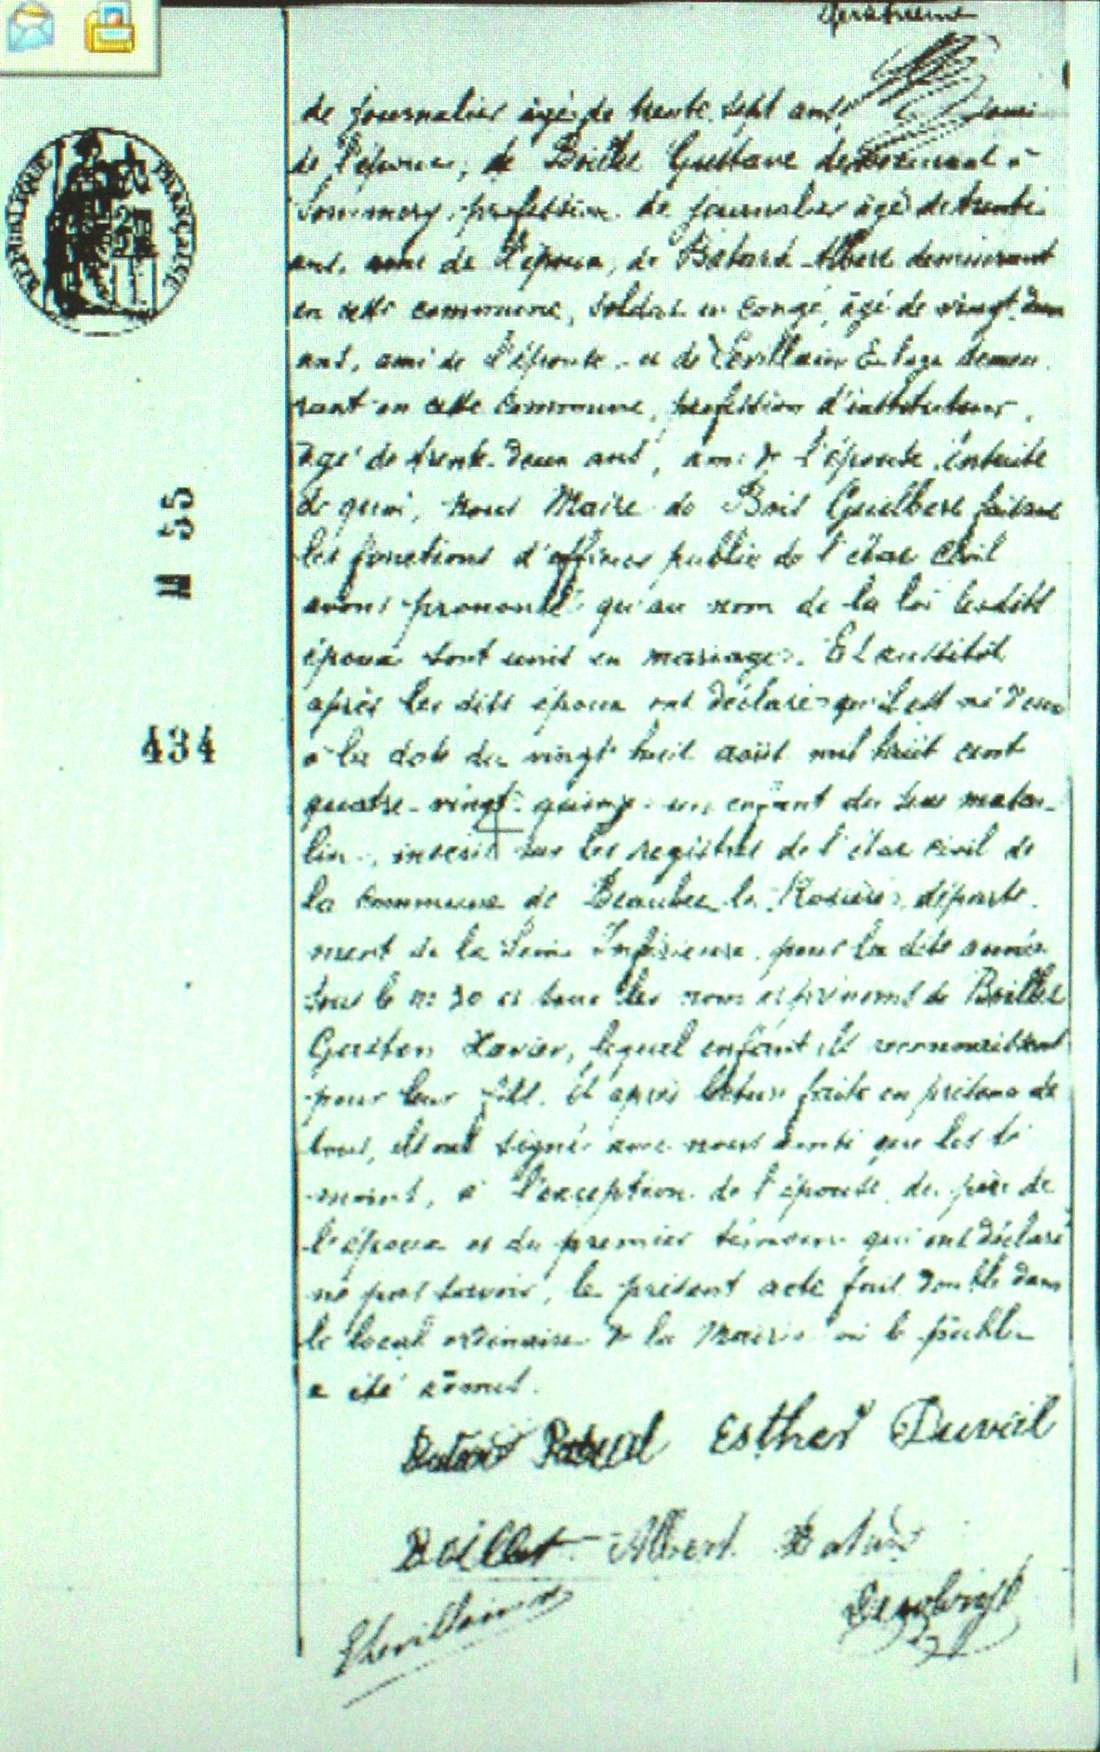 de journalier âgé de trente sept ans, ami
de l'époux, de Boillet Gustave demeurant à
Sommery, profession de journalier âgé de trente
ans, ami de l'époux, de Batard Albert demeurant
en cette commune, soldat en congé, âgé de vingt deux
ans, ami de l'épouse et de Levillain demeu
rant en cette commune, profession d'instituteur,
âgé de trente-deux ans, ami de l'épouse, ensuite
de quoi, nous Maire de Bois Guilbert faisant
les fonctions d'officier public de l'état civil
avons prononcé qu'au nom de la loi lesdits
époux sont unis en mariage. Et aussitôt
après les dits époux ont déclaré qu'il est né d'eux
à la date du vingt huit août mil huit cent
quatre-vingt-quinze un enfant du sexe mascu-
lin, inscrit sur les registres de l'état civil de
la commune de Beaubec la Rosière, départe-
ment de la Seine Inférieure, pour la dite année
sous le n° 30 et sous les noms et prénoms de Boillet
Gaston Xavier, lequel enfant ils reconnaissent
pour leur fils. Et après lecture faite en présence de
tous, ils ont signé avec nous ainsi que les té
moins, à l'exception de l'épouse, du père de
l'époux et du premier témoin qui ont déclaré
ne pas savoir, le présent acte fait double dans
le local ordinaire de la Mairie où le public
a été admis.
Esther Duveil
Boillet Albert Batard
Levillain
RÉPUBLIQUE FRANÇAISE
55
434